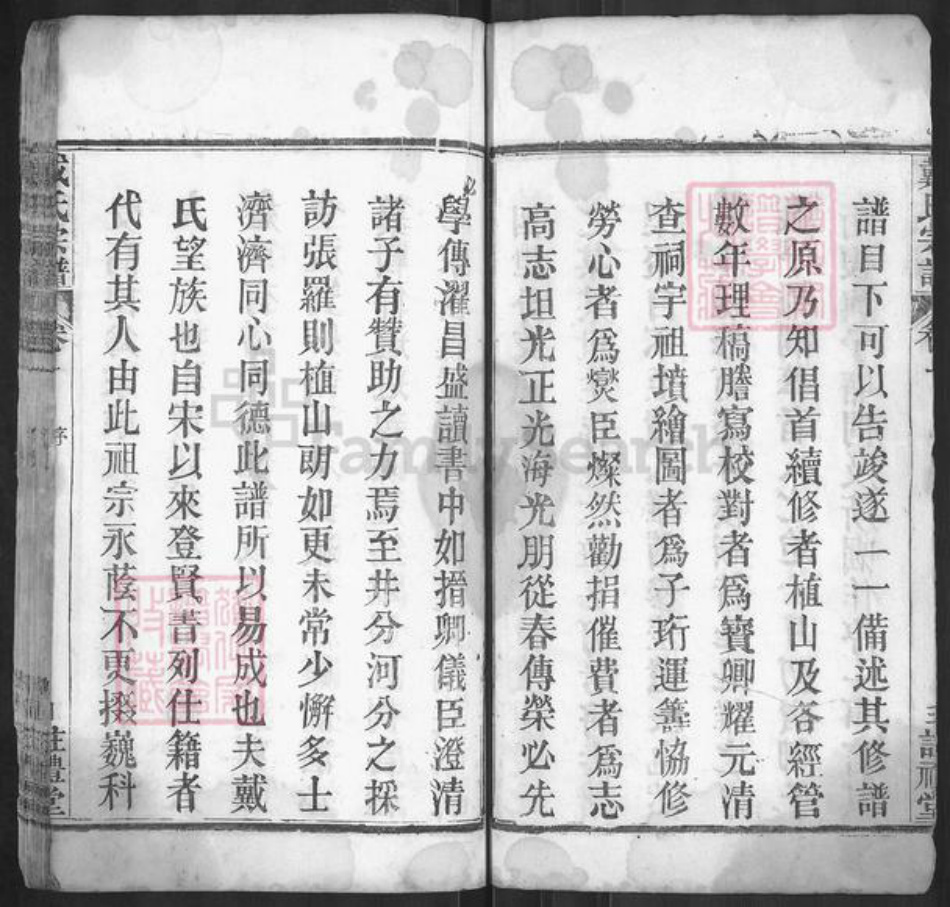 譜目下可以告竣遂一一備述其修譜
之原乃知倡首續修者植山及各經管
數年理稿謄寫校對者為寶卿耀元清
查祠宇祖墳繪圖者為子珩運籌協修
勞心者為燮臣燦然勸捐催費者為志
高志坦光正光海光朋從春傳榮必先
必學傳濯昌盛讀書中如搢卿儀臣澄清
諸子有贊助之力焉至井分河分之採
訪張羅則植山朗如更未常少懈多士
濟濟同心同德此譜所以易成也夫戴
氏望族也自宋以來登賢書列仕籍者
代有其人由此祖宗永蔭不更掇巍科
戴氏宗譜 卷一 序
註禮堂
FamilySearch